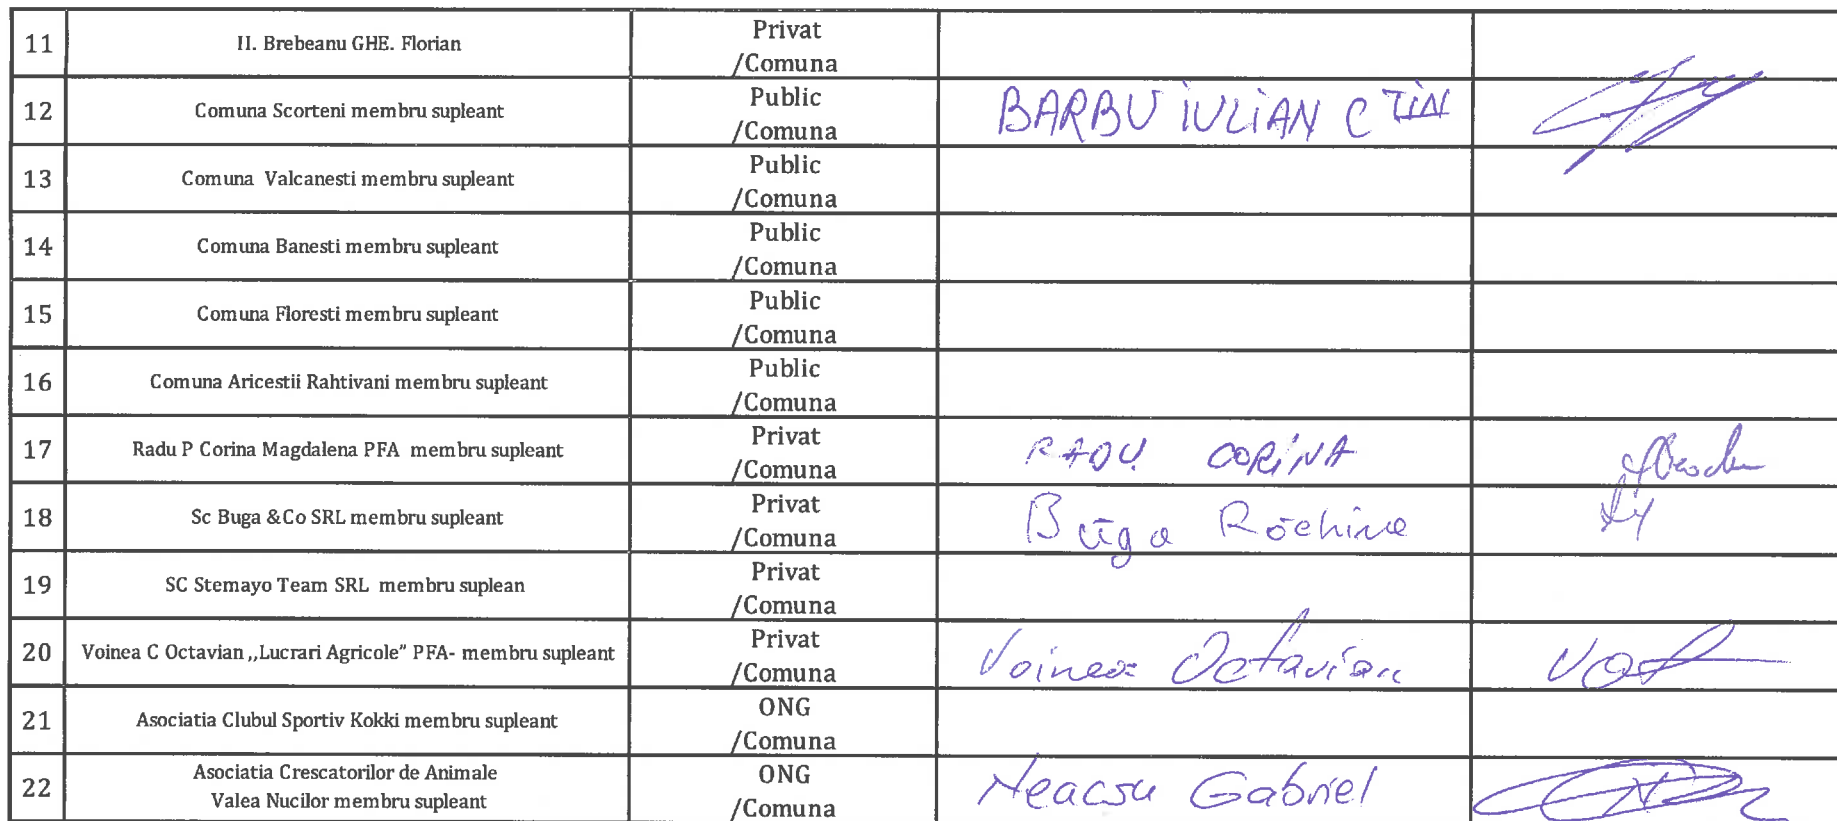 11 II. Brebeanu GHE. Florian Privat
/Comuna
12 Comuna Scorteni membru supleant Public
/Comuna BARBU IULIAN CTIN
13 Comuna Valcanesti membru supleant Public
/Comuna
14 Comuna Banesti membru supleant Public
/Comuna
15 Comuna Floresti membru supleant Public
/Comuna
16 Comuna Aricestii Rahtivani membru supleant Public
/Comuna
17 Radu P Corina Magdalena PFA membru supleant Privat
/Comuna RADU CORINA
18 Sc Buga &Co SRL membru supleant Privat
/Comuna Buga
19 SC Stemayo Team SRL membru suplean Privat
/Comuna
20 Voinea C Octavian ,,Lucrari Agricole" PFA- membru supleant Privat
/Comuna Voinea Octavian
21 Asociatia Clubul Sportiv Kokki membru supleant ONG
/Comuna
22 Asociatia Crescatorilor de Animale
Valea Nucilor membru supleant ONG
/Comuna Neacsu Gabriel